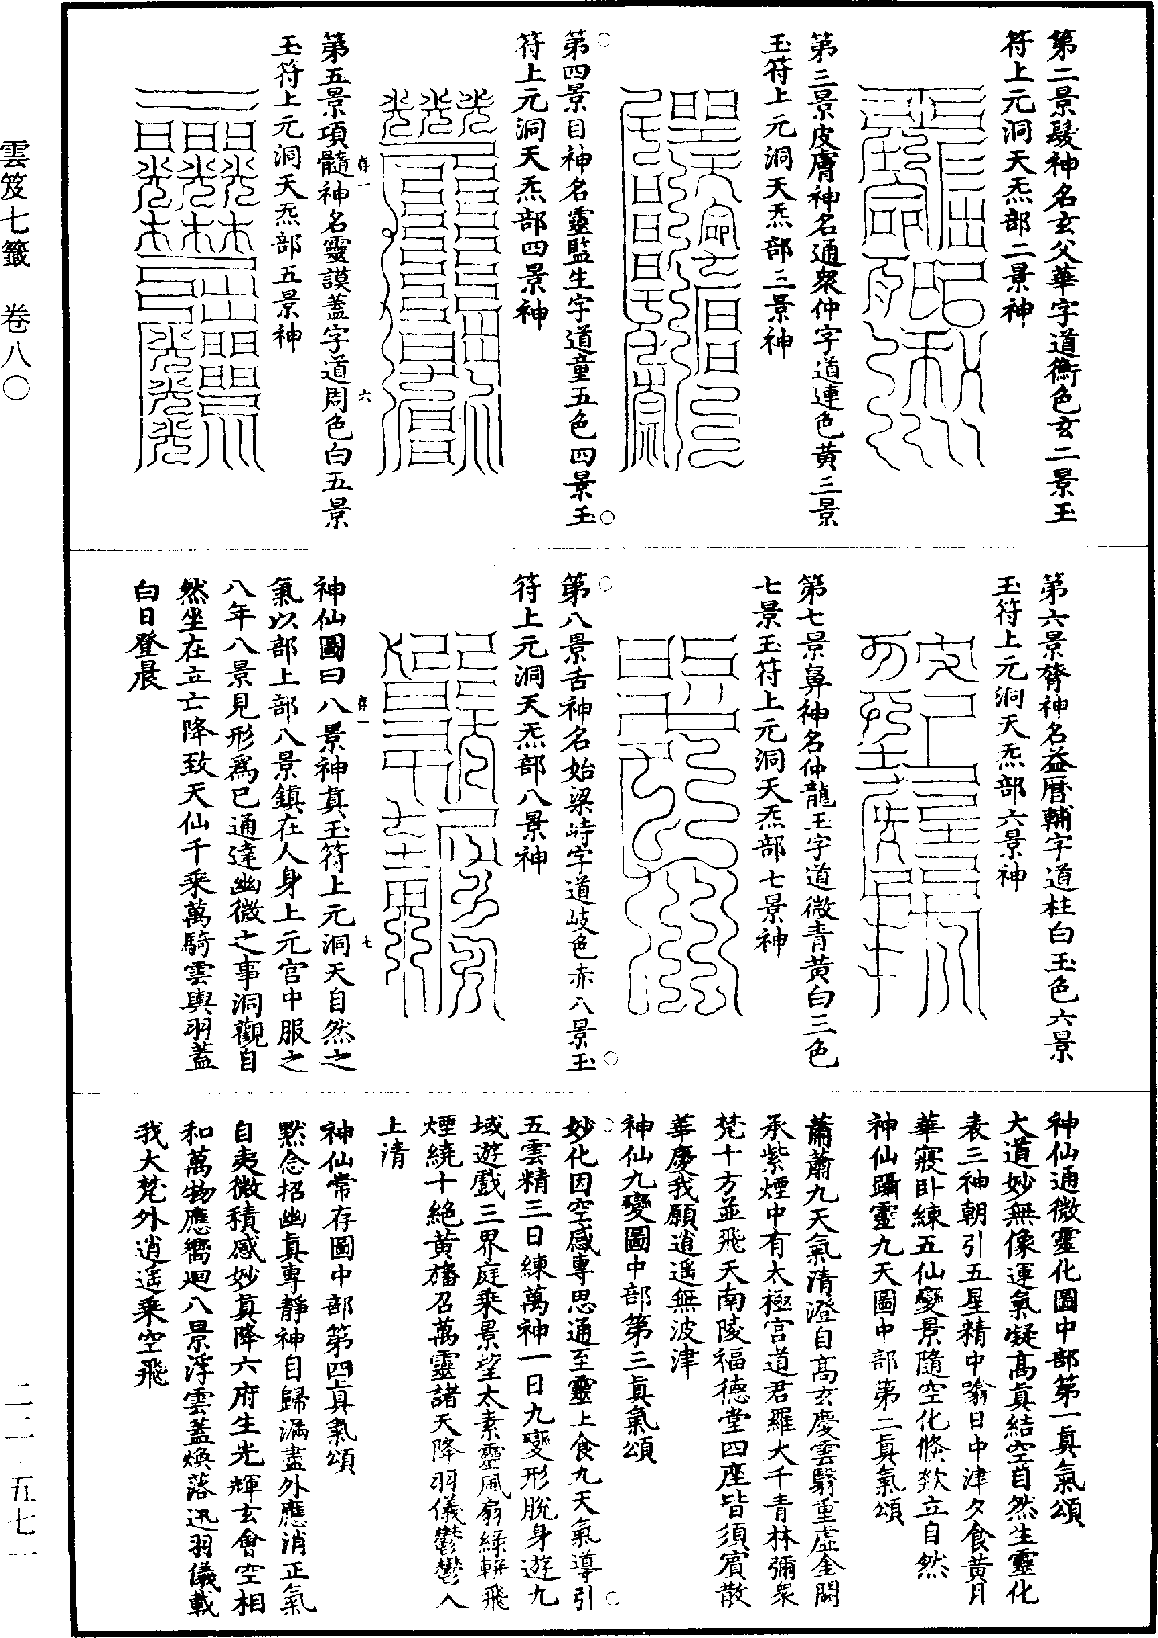 第二景髮神名玄父華字道衡色玄二景玉
符上元洞天炁部二景神
第三景皮膚神名通衆仲字道連色黃三景
玉符上元洞天炁部三景神
第四景目神名靈監生字道童五色四景玉
符上元洞天炁部四景神
第五景項髓神名靈謨蓋字道周色白五景
玉符上元洞天炁部五景神
第六景膂神名益曆輔字道柱白玉色六景
玉符上元洞天炁部六景神
第七景鼻神名仲龍玉字道微青黃白三色
七景玉符上元洞天炁部七景神
第八景舌神名始梁峙字道岐色赤八景玉
符上元洞天炁部八景神
神仙圖曰八景神真玉符上元洞天自然之
氣以部上部八景鎮在人身上元宮中服之
八年八景見形爲已通達幽微之事洞觀自
然坐在立亡降致天仙千乘萬騎雲輿羽蓋
白日登晨
神仙通微靈化圖中部第一真氣頌
大道妙無像運氣凝高真結空自然生靈化
表三神朝引五星精中喻日中津夕食黃月
華寢卧練五仙變景隨空化倏欻立自然
神仙躡靈九天圖中部第二真氣頌
蕭蕭九天氣清澄自高玄慶雲翳重虛金開
承紫煙中有太極宮道君羅大千青林彌衆
梵十方並飛天南陵福德堂四座皆須賓散
華慶我願逍遥無波津
神仙九變圖中部第三真氣頌
妙化因空感專思通至靈上食九天氣導引
五雲精三日練萬神一日九變形脫身遊九
域遊戲三界庭乘景望太素靈風扇綠軿飛
煙繞十絶黃旛召萬靈諸天降羽儀鬱鬱入
上清
神仙常存圖中部第四真氣頌
默念招幽真專靜神自歸漏盡外應消正氣
自夷微積感妙真降六府生光輝玄會空相
和萬物應嚮迴八景浮雲蓋煥落迅羽儀載
我大梵外逍遥乘空飛
雲笈七籤 卷八〇
二二 五七一